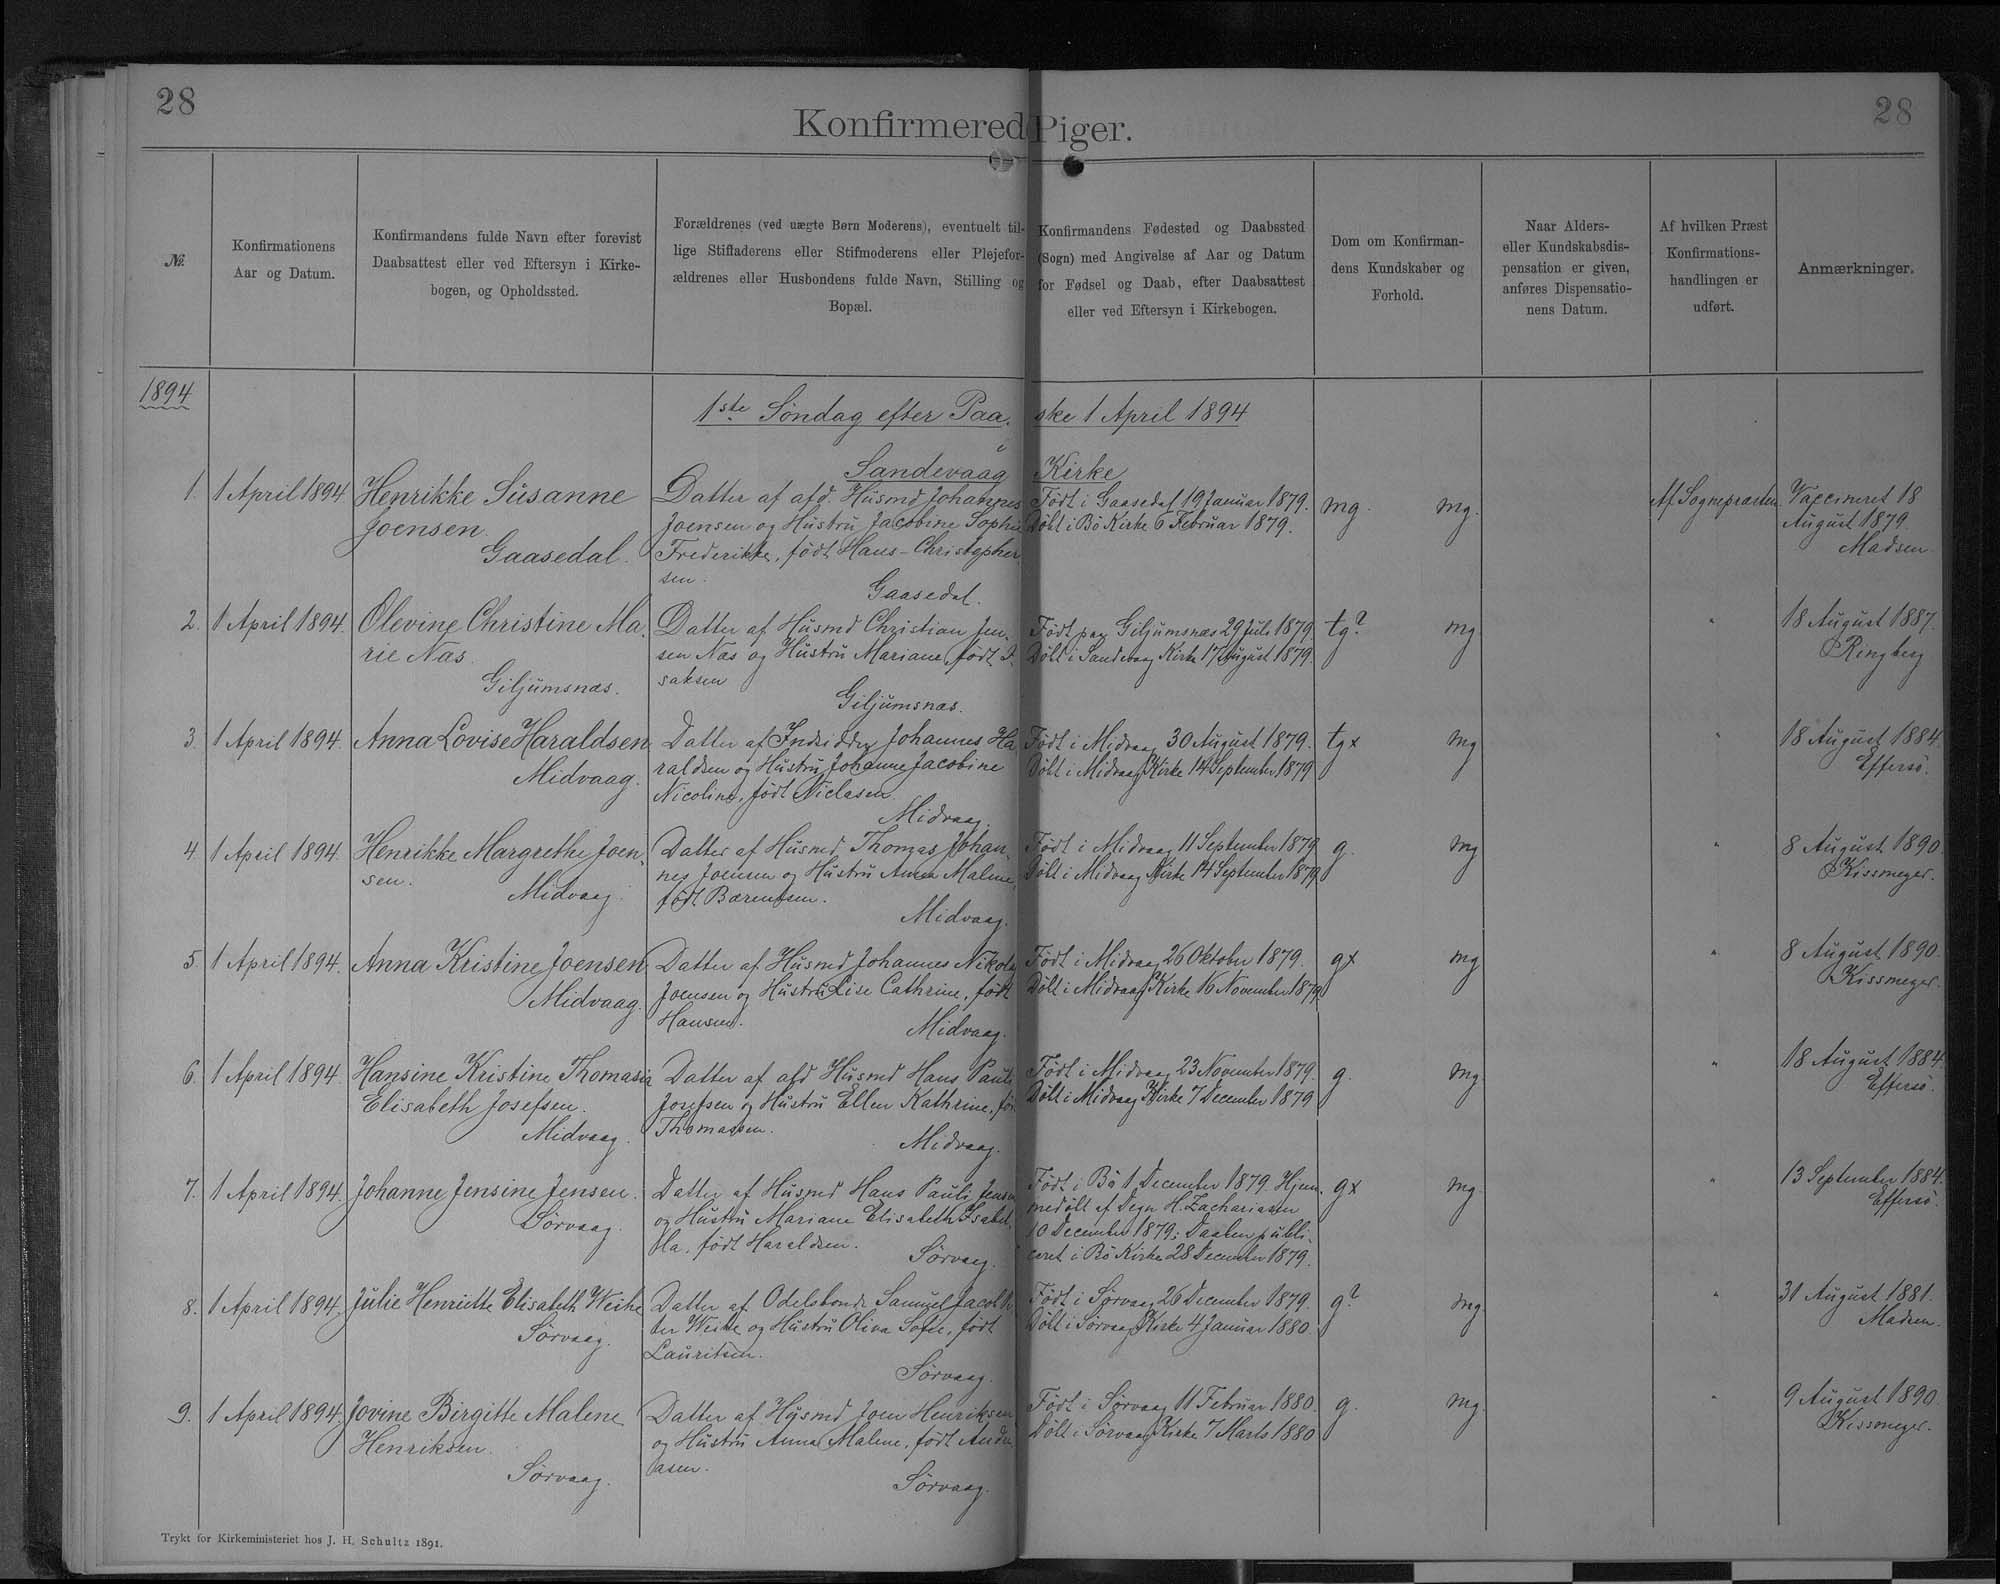 28
28
Konfirmered Piger.
No.
Konfirmationens
Aar og Datum.
Konfirmandens fulde Navn efter forevist
Daabsattest eller ved Eftersyn i Kirke-
bogen, og Opholdssted.
Forældrenes (ved uægte Børn Moderens), eventuelt til-
lige Stiffaderens eller Stifmoderens eller Plejefor-
ældrenes eller Husbondens fulde Navn, Stilling og
Bopæl.
Konfirmandens Fødested og Daabssted
(Sogn) med Angivelse af Aar og Datum
for Fødsel og Daab, efter Daabsattest
eller ved Eftersyn i Kirkebogen.
Dom om Konfirman-
dens Kundskaber og
Forhold.
Naar Alders-
eller Kundskabsdis-
pensation er given,
anføres Dispensatio-
nens Datum.
Af hvilken Præst
Konfirmations-
handlingen er
udført.
Anmærkninger.
1894
1ste Søndag efter Paaske 1 April 1894
Sandevaag Kirke
1. 1 April 1894
Henrikke Susanne
Joensen.
Gaasedal.
Datter af afd. Husmd Johannes
Joensen og Hustru Jacobine Sophie
Frederikke, født Hans-Christopher
sen.
Gaasedal.
Født i Gaasedal 19 Januar 1879.
Døbt i Bø Kirke 6 Februar 1879.
mg. mg.
Af Sognepræsten.
Vaccineret 18
August 1879.
Madsen.
2. 1 April 1894.
Olevine Christine Ma.
rie Næs.
Giljumsnæs.
Datter af Husmd Christian Jen.
sen Næs og Hustru Mariane, født I.
saksen
Giljumsnæs.
Født paa Giljumsnæs 29 Juli 1879
Døbt i Sandevaag Kirke 17 August 1879.
tg? mg
"
18 August 1887.
Ringberg
3. 1 April 1894.
Anna Lovise Haraldsen
Midvaag.
Datter af Johannes Ha
raldsen og Hustru Johanne Jacobine
Nicoline, født Niclasen.
Midvaag.
Født i Midvaag 30 August 1879.
Døbt i Midvaag Kirke 14 September 1879
tgx mg
"
18 August 1884
Effersø.
4. 1 April 1894.
Henrikke Margrethe Joen.
sen.
Midvaag.
Datter af Husmd Thomas Johan.
nes Joensen og Hustru Anna Malene,
født Barentsen.
Midvaag.
Født i Midvaag 11 September 1879
Døbt i Midvaag Kirke 14 September 1879
g. mg
"
8 August 1890.
Kissmeyer.
5. 1 April 1894.
Anna Kristine Joensen
Midvaag.
Datter af Husmd Johannes Nikolaj
Joensen og Hustru Lise Cathrine, født
Hansen.
Midvaag.
Født i Midvaag 26 Oktober 1879.
Døbt i Midvaag Kirke 16 November 1879
gx mg
"
8 August 1890.
Kissmeyer.
6. 1 April 1894.
Hansine Kristine Thomasia
Elisabeth Josefsen.
Midvaag.
Datter af afd Husmd Hans Pauli
Josefsen og Hustru Ellen Kathrine, fø
Thomassen.
Midvaag.
Født i Midvaag 23 November 1879.
Døbt i Midvaag Kirke 7 December 1879
g. mg.
"
18 August 1884
Effersø.
7. 1 April 1894.
Johanne Jensine Jensen.
Sørvaag.
Datter af Husmd Hans Pauli Jensen
og Hustru Mariane Elisabeth Isabel.
la, født Haraldsen.
Sørvaag.
Født i Bø 1 December 1879. Hjem.
medøbt af Degn H. Zachariasen
10 December 1879; Daaben publi.
ceret i Bø Kirke 28 December 1879.
gx mg.
"
13 September 1884.
Effersø.
8. 1 April 1894.
Julie Henriette Elisabeth Weihe
Sørvaag.
Datter af Odelsbonde Samuel Jacob
Weihe og Hustru Oliva Sofie, født
Lauritsen.
Sørvaag.
Født i Sørvaag 26 December 1879.
Døbt i Sørvaag Kirke 4 Januar 1880.
g? mg.
"
31 August 1881.
Madsen.
9. 1 April 1894.
Jovine Birgitte Malene
Henriksen.
Sørvaag.
Datter af Husmd Joen Henriksen
og Hustru Anna Malene, født Andre
asen.
Sørvaag.
Født i Sørvaag 11 Februar 1880.
Døbt i Sørvaag Kirke 7 Marts 1880
g. mg.
"
9 August 1890.
Kissmeyer.
Trykt for Kirkeministeriet hos J. H. Schultz 1891.